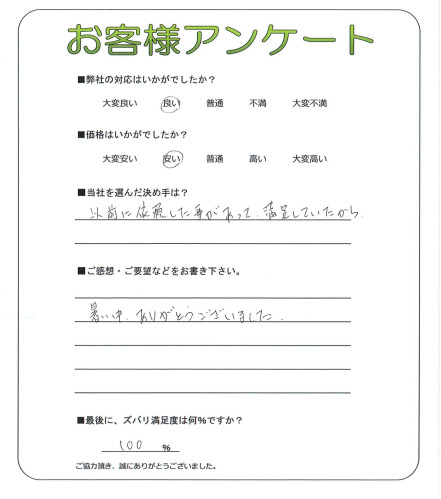 お客様アンケート
■弊社の対応はいかがでしたか?
大変良い 良い 普通 不満 大変不満
■価格はいかがでしたか?
大変安い 安い 普通 高い 大変高い
■当社を選んだ決め手は?
以前に依頼した事があって、満足していたから
■ご感想・ご要望などをお書き下さい。
暑い中、ありがとうございました。
■最後に、ズバリ満足度は何%ですか?
100 %
ご協力頂き、誠にありがとうございました。